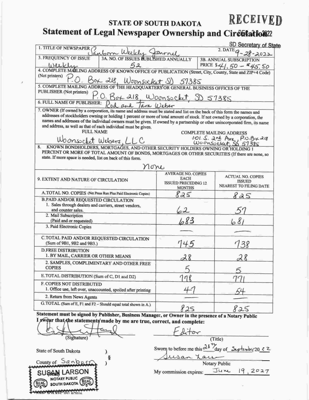 STATE OF SOUTH DAKOTA
RECEIVED
Statement of Legal Newspaper Ownership and Circulation
SD Secretary of State
1. TITLE OF NEWSPAPER Sanborn Weekly Journal
2. DATE 9-28-2022
3. FREQUENCY OF ISSUE
Weekly
3A. NO. OF ISSUES PUBLISHED ANNUALLY
52
3B. ANNUAL SUBSCRIPTION
PRICE $41.50 - $45.50
4. COMPLETE MAILING ADDRESS OF KNOWN OFFICE OF PUBLICATION (Street, City, County, State and ZIP+4 Code)
(Not printers) P.O. Box 218, Woonsocket SD 57385
5. COMPLETE MAILING ADDRESS OF THE HEADQUARTERS OR GENERAL BUSINESS OFFICES OF THE
PUBLISHER (Not printer) P.O. Box 218, Woonsocket, SD 57385
6. FULL NAME OF PUBLISHER: Rod and Tara Weber
7. OWNER (If owned by a corporation, its name and address must be stated and list on the back of this form the names and
addresses of stockholders owning or holding 1 percent or more of total amount of stock. If not owned by a corporation, the
names and addresses of the individual owners must be given. If owned by a partnership or other unincorporated firm, its name
and address, as well as that of each individual must be given.
FULL NAME
COMPLETE MAILING ADDRESS
Woonsocket Webers, LLC
Woonsocket SD 57385
8. KNOWN BONDHOLDERS, MORTGAGES, AND OTHER SECURITY HOLDERS OWNING OR HOLDING 1
PERCENT OR MORE OF TOTAL AMOUNT OF BONDS, MORTGAGES OR OTHER SECURITIES (If there are none, so
state. If more space is needed, list on back of this form.
none
9. EXTENT AND NATURE OF CIRCULATION
AVERAGE NO. COPIES
EACH
ISSUE PRECEDING 12
MONTHS
ACTUAL NO. COPIES
ISSUED
NEAREST TO FILING DATE
A. TOTAL NO. COPIES (Net Press Run Plus Paid Electronic Copies)
825
825
B. PAID AND/OR REQUESTED CIRCULATION
1. Sales through dealers and carriers, street vendors,
and counter sales
62
57
2. Mail Subscription
(Paid and or requested)
683
681
3. Paid Electronic Copies
C. TOTAL PAID AND/OR REQUESTED CIRCULATION
745
738
D. FREE DISTRIBUTION
1. BY MAIL, CARRIER OR OTHER MEANS
28
28
2. SAMPLES, COMPLIMENTARY AND OTHER FREE
COPIES
5
5
E. TOTAL DISTRIBUTION (Sum of C, D1 and D2)
778
771
F. COPIES NOT DISTRIBUTED
1. Office use, left over, unaccounted, spoiled after printing
47
54
2. Return from News Agents
G. TOTAL (Sum of E, F1 and F2 – Should equal total shown in A.)
825
825
Statement must be signed by Publisher, Business Manager, or Owner in the presence of a Notary Public
I swear that the statements made by me are true, correct, and complete:
Editor
(Signature)
(Title)
State of South Dakota )
Sworn to before me this 28th day of September 2022
County of Sanborn
Notary Public
SUSAN LARSON
NOTARY PUBLIC
SOUTH DAKOTA
My commission expires: June 19, 2027